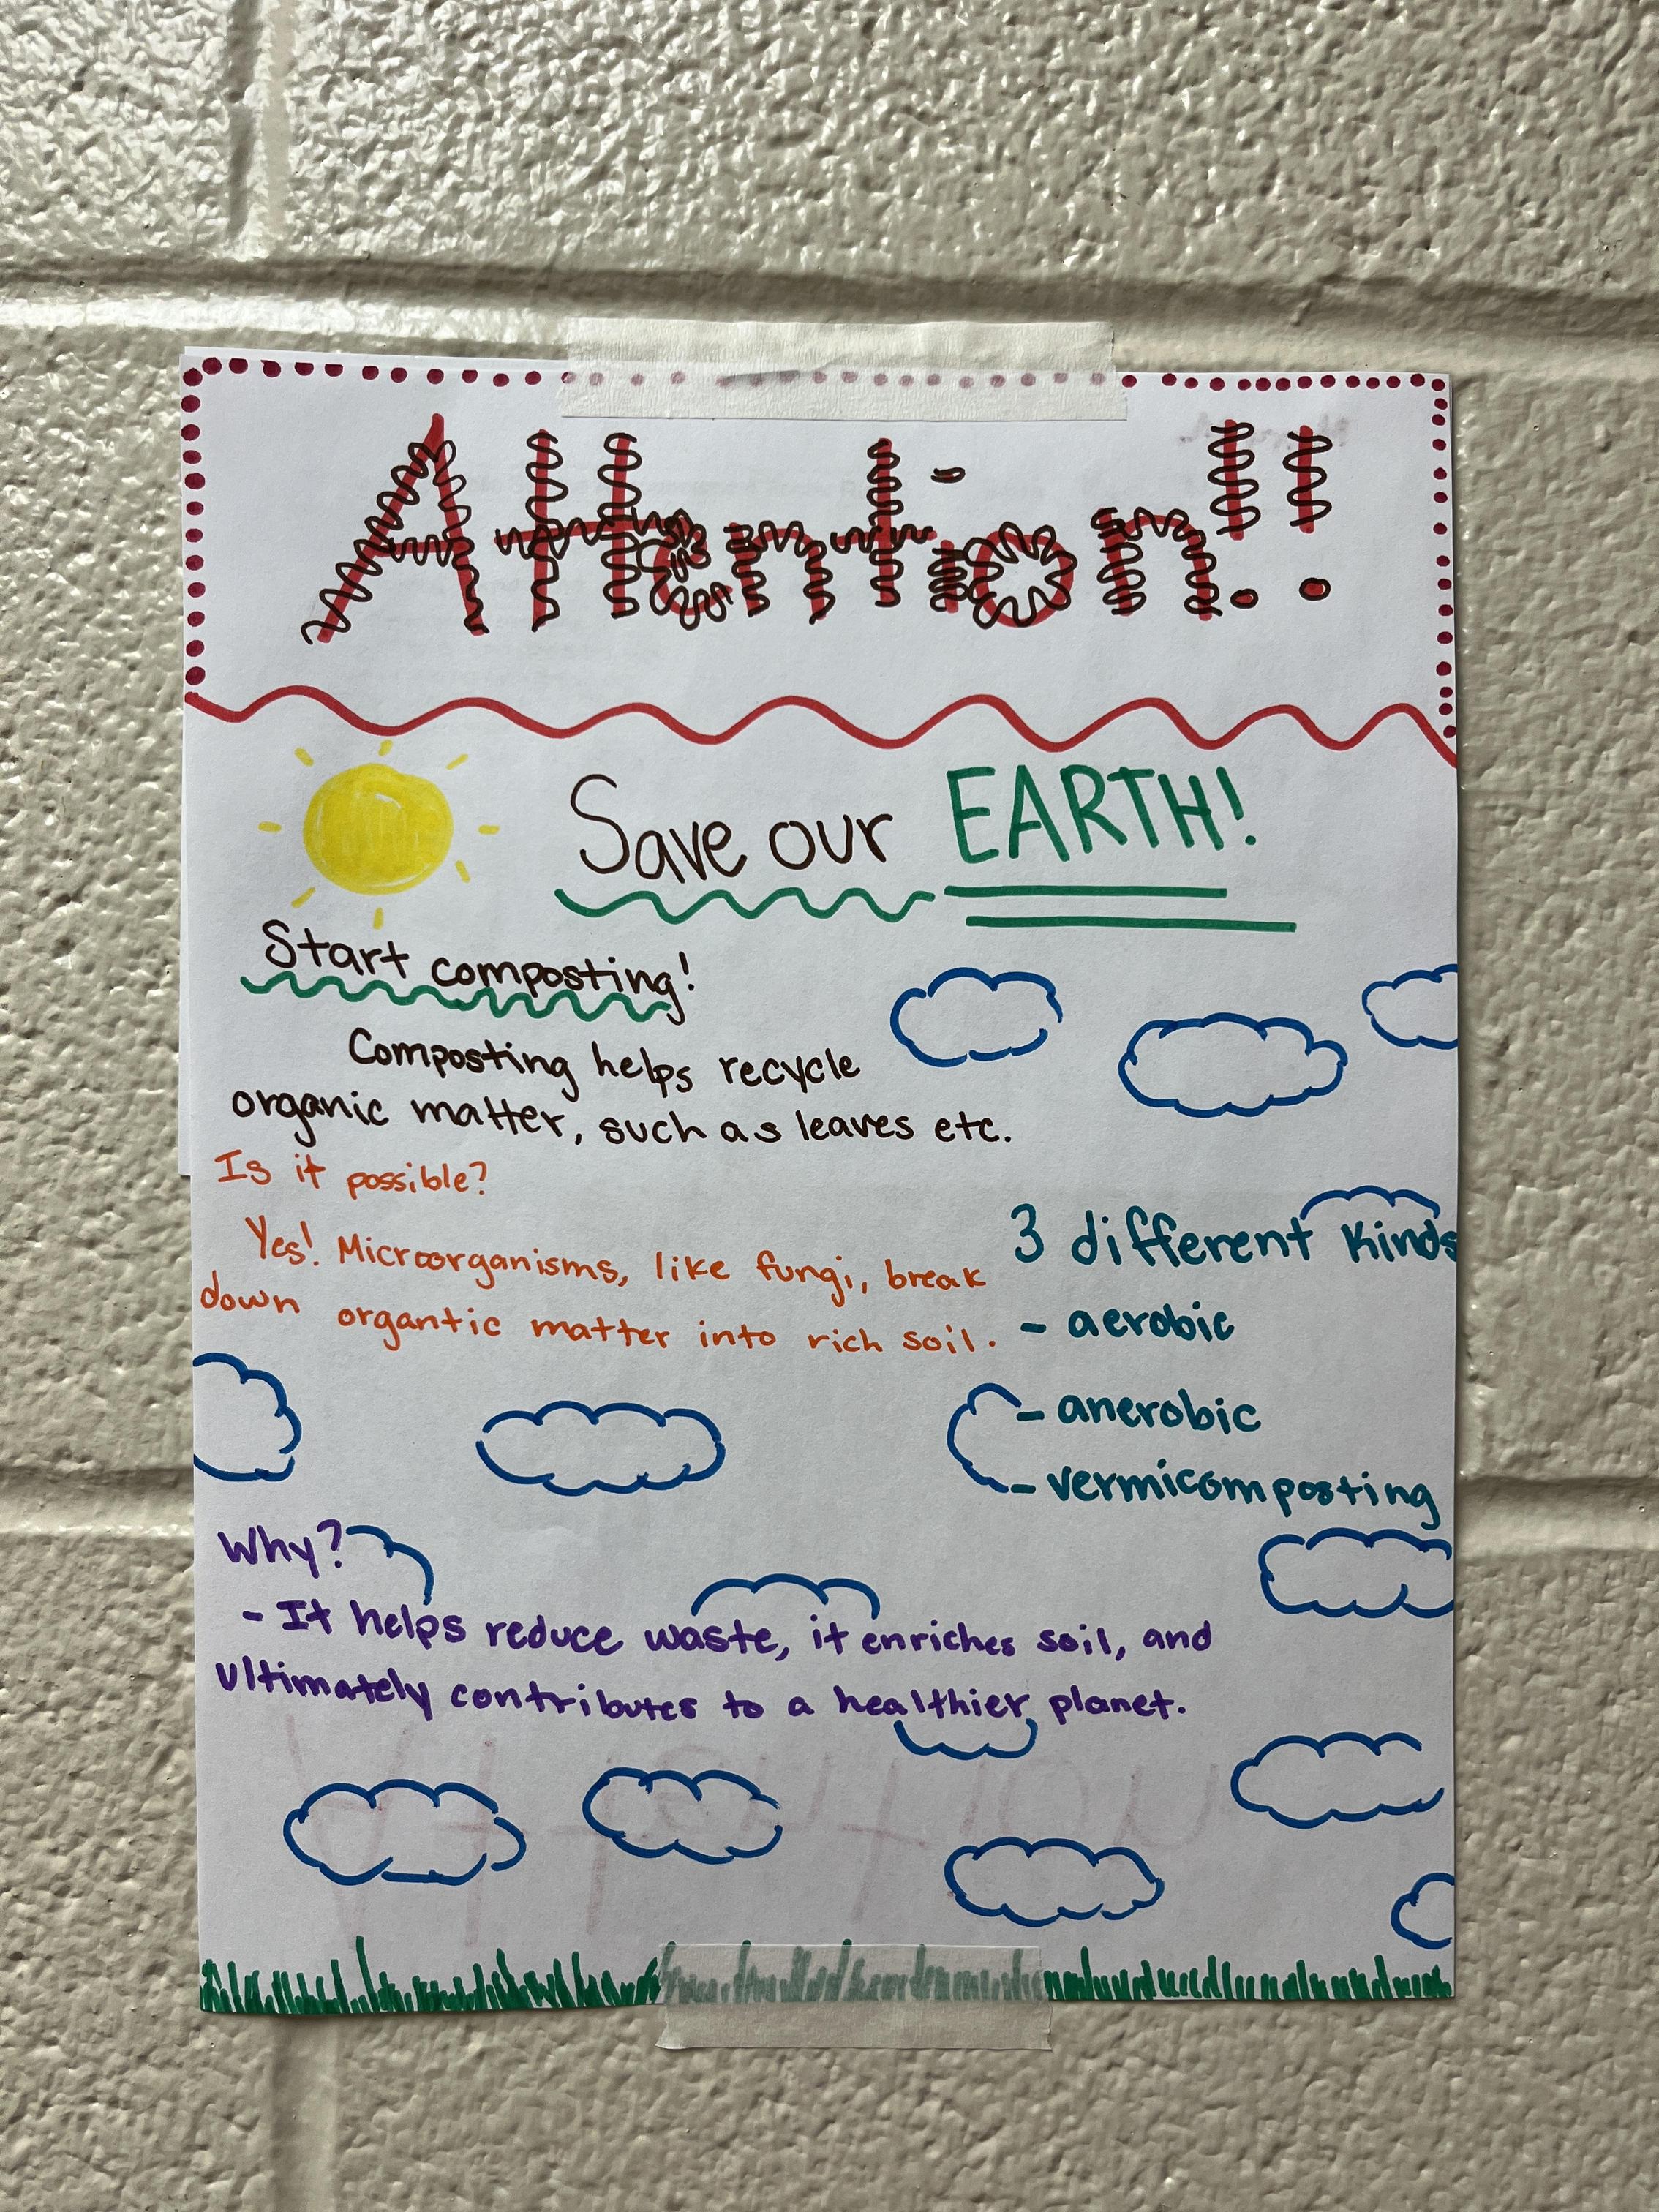 Attention!!
Save our EARTH!
Start composting!
Composting helps recycle
organic matter, such as leaves etc.
Is it possible?
Yes! Microorganisms, like fungi, break
down organtic matter into rich soil.
3 different kinds
- aerobic
- anerobic
- vermicomposting
Why?
- It helps reduce waste, it enriches soil, and
ultimately contributes to a healthier planet.